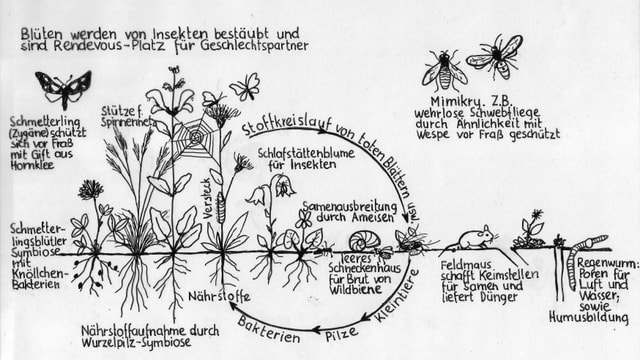 Blüten werden von Insekten bestäubt und
sind Rendevous-Platz für Geschlechtspartner
Schmetterling
(Zygäne) schützt
sich vor Fraß
mit Gift aus
Hornklee
Stütze f.
Spinnennetz
Mimikry. Z.B.
wehrlose Schwebfliege
durch Ähnlichkeit mit
Wespe vor Fraß geschützt
Stoffkreislauf von toten Blättern usw.
Schlafstättenblume
für Insekten
Versteck
Samenausbreitung
durch Ameisen
Schmetter-
lingsblütler
Symbiose
mit
Knöllchen-
Bakterien
leeres
Schneckenhaus
für Brut von
Wildbiene
Feldmaus
schafft Keimstellen
für Samen und
liefert Dünger
Regenwurm:
Poren für
Luft und
Wasser,
sowie
Humusbildung
Nährstoffe
Bakterien Pilze Kleintiere
Nährstoffaufnahme durch
Wurzelpilz-Symbiose